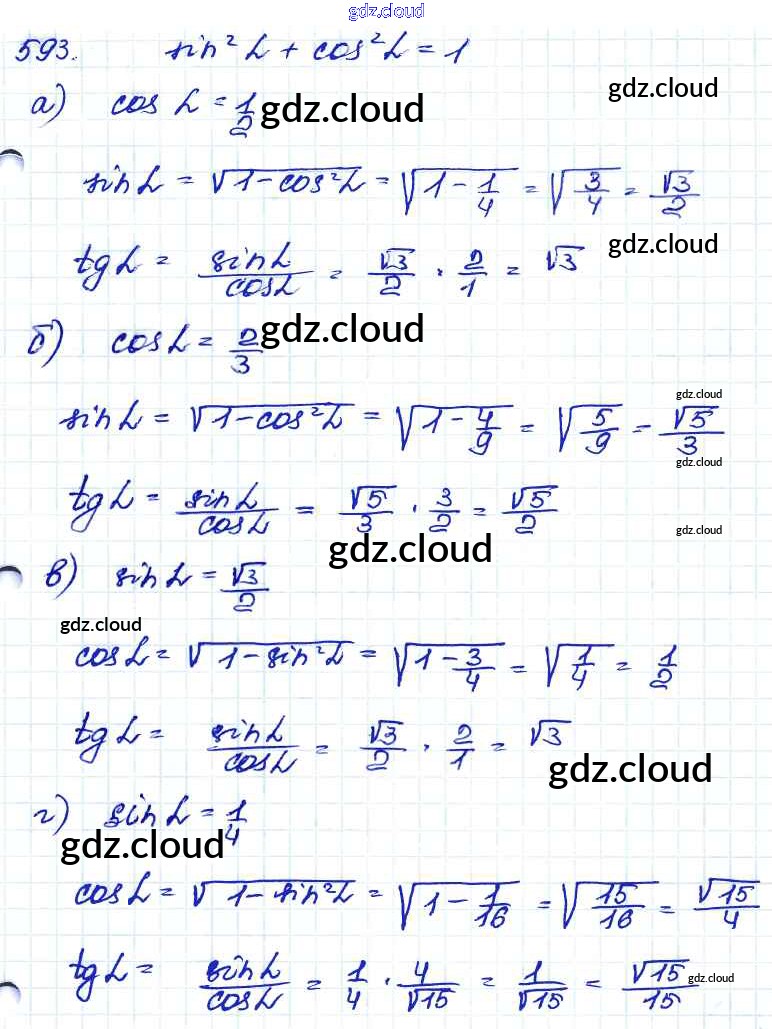 gdz.cloud
593. sin² α + cos² α = 1
а) cos α = 1/2 gdz.cloud gdz.cloud
sin α = √(1 - cos² α) = √(1 - 1/4) = √(3/4) = √3/2
tg α = sin α/cos α = √3/2 · 2/1 = √3 gdz.cloud
б) cos α = 2/3 gdz.cloud
sin α = √(1 - cos² α) = √(1 - 4/9) = √(5/9) = √5/3 gdz.cloud gdz.cloud
tg α = sin α/cos α = √5/3 · 3/2 = √5/2 gdz.cloud
gdz.cloud
в) sin α = √3/2
gdz.cloud
cos α = √(1 - sin² α) = √(1 - 3/4) = √(1/4) = 1/2
tg α = sin α/cos α = √3/2 · 2/1 = √3
gdz.cloud
г) sin α = 1/4
gdz.cloud
cos α = √(1 - sin² α) = √(1 - 1/16) = √(15/16) = √15/4
tg α = sin α/cos α = 1/4 · 4/√15 = 1/√15 = √15/15 gdz.cloud